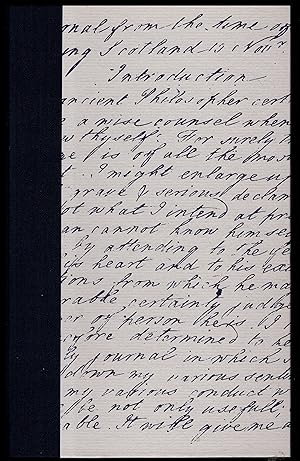 onal from the time of
ing Scotland 15 Nov.r
Introduction
ancient Philosopher cert
a wise counsel when
w thyself: For surely t
e is of all the most
t. I might enlarge up
grave & serious declam
ot what I intend at pr
an cannot know himse
by attending to the fe
his heart and to his ex
tions from which he ma
rable certainty judge
er of person he is. I
efore determined to ke
ly journal in which
down my various senti
my various conduct w
be not only usefull;
able. It will give me a